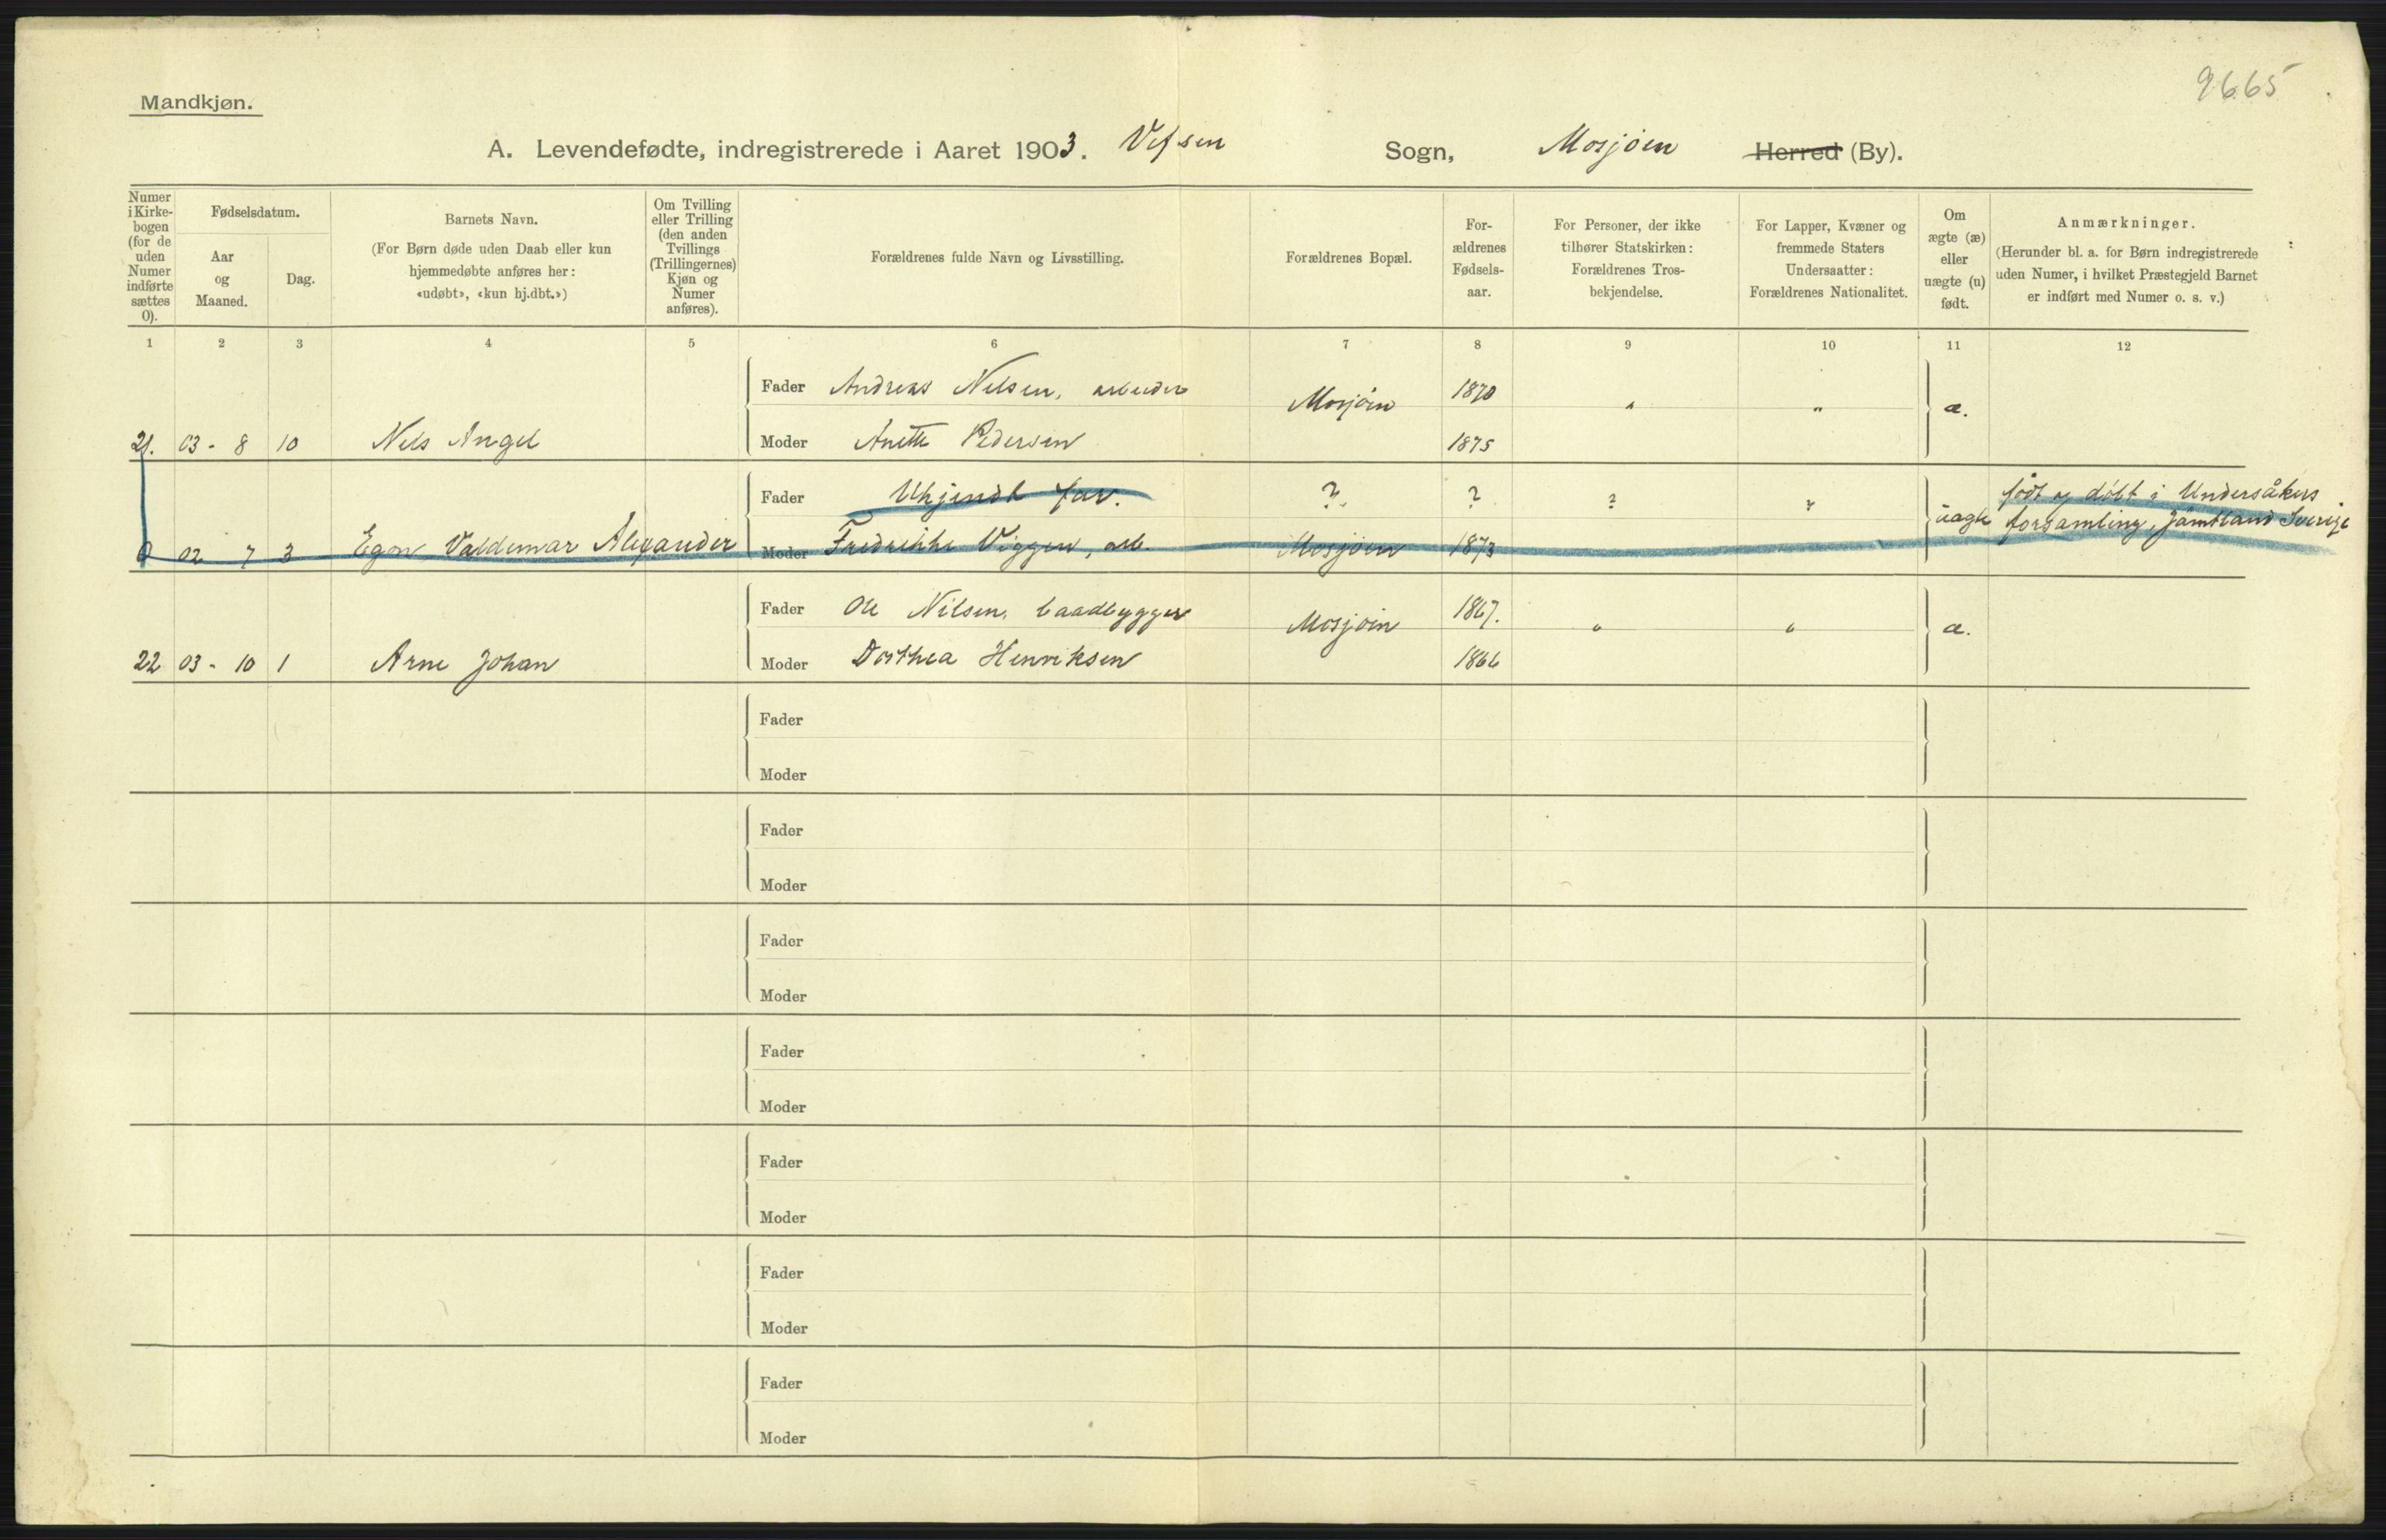 9665
Mandkjøn.
A. Levendefødte, indregistrerede i Aaret 1903. Vefsen Sogn, Mosjøen Herred (By).
Numer i Kirke-bogen (for de uden Numer indførte sættes 0).
Fødselsdatum.
Aar og Maaned.
Dag.
Barnets Navn.
(For Børn døde uden Daab eller kun
hjemmedøbte anføres her:
«udøbt», «kun hj.dbt.»)
Om Tvilling
eller Trilling
(den anden
Tvillings
(Trillingernes)
Kjøn og
Numer
anføres).
Forældrenes fulde Navn og Livsstilling.
Forældrenes Bopæl.
For-
ældrenes
Fødsels-
aar.
For Personer, der ikke
tilhører Statskirken:
Forældrenes Tros-
bekjendelse.
For Lapper, Kvæner og
fremmede Staters
Undersaatter:
Forældrenes Nationalitet.
Om
ægte (æ)
eller
uægte (u)
født.
Anmærkninger.
(Herunder bl. a. for Børn indregistrerede
uden Numer, i hvilket Præstegjeld Barnet
er indført med Numer o. s. v.)
1 2 3 4 5 6 7 8 9 10 11 12
Fader Andreas Nilsen, arbeider Mosjøen 1870 " " æ.
21. 03 - 8 10 Nils Angel Moder Anette Pedersen 1875
Fader Ukjendt far. ? ? ? ? uægte født og døbt i Undersåkers
forsamling, Jämtland Sverige
0 02 7 3 Egon Valdemar Alexander Moder Fredrikke Viggen, arb. Mosjøen 1873
Fader Ole Nilsen, baadbygger Mosjøen 1867. " " æ.
22 03 - 10 1 Arne Johan Moder Dorthea Henriksen 1866
Fader
Moder
Fader
Moder
Fader
Moder
Fader
Moder
Fader
Moder
Fader
Moder
Fader
Moder